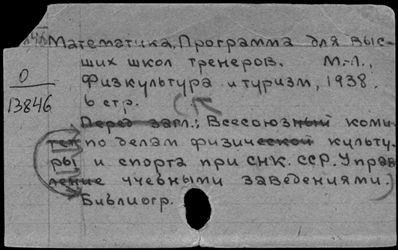 Математика, Программа для выс-
ших школ тренеров. М.-Л.,
О
13846
Физкультура и туризм, 1938.
6 стр.
Перед загл.: Всесоюзный коми-
тет по делам физической культу-
ры и спорта при СНК. ССР. Управ-
ление учебными заведениями.)
Библиогр.